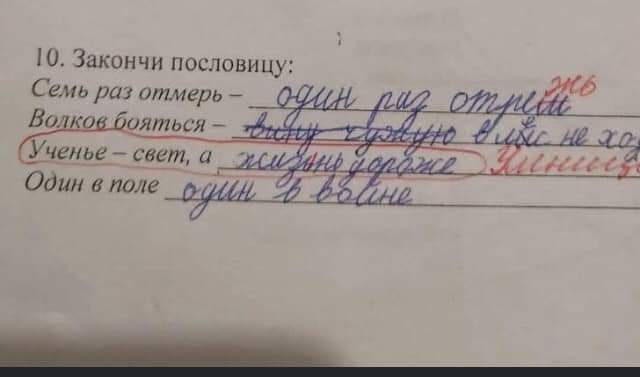 10. Закончи пословицу:
жь
Семь раз отмерь – один раз отреш
Волков бояться – в лес не хо
Ученье – свет, а жизнь дороже Умница
Один в поле один в воине